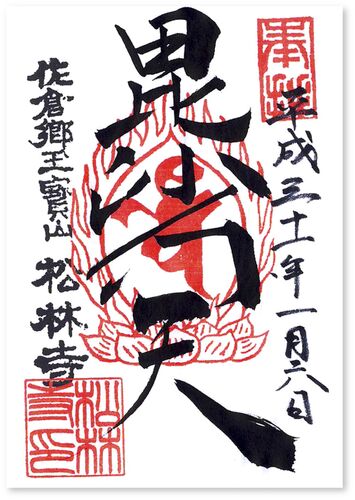 奉拝
平成三十一年一月六日
毘沙門天
佐倉郷玉寶山 松林寺
松林
寺印